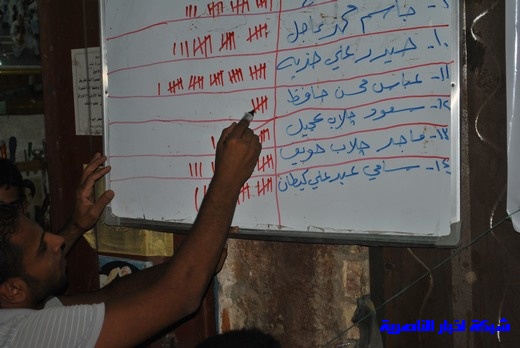 ٩- جاسم محمد عاجل
١٠- حيدر علي حزبه
١١- عباس محسن حافظ
١٢- سعود جلاب عجيل
١٣- ماجد جلاب حويف
١٤- سامي عبد علي كيطان
شبكة اخبار الناصرية